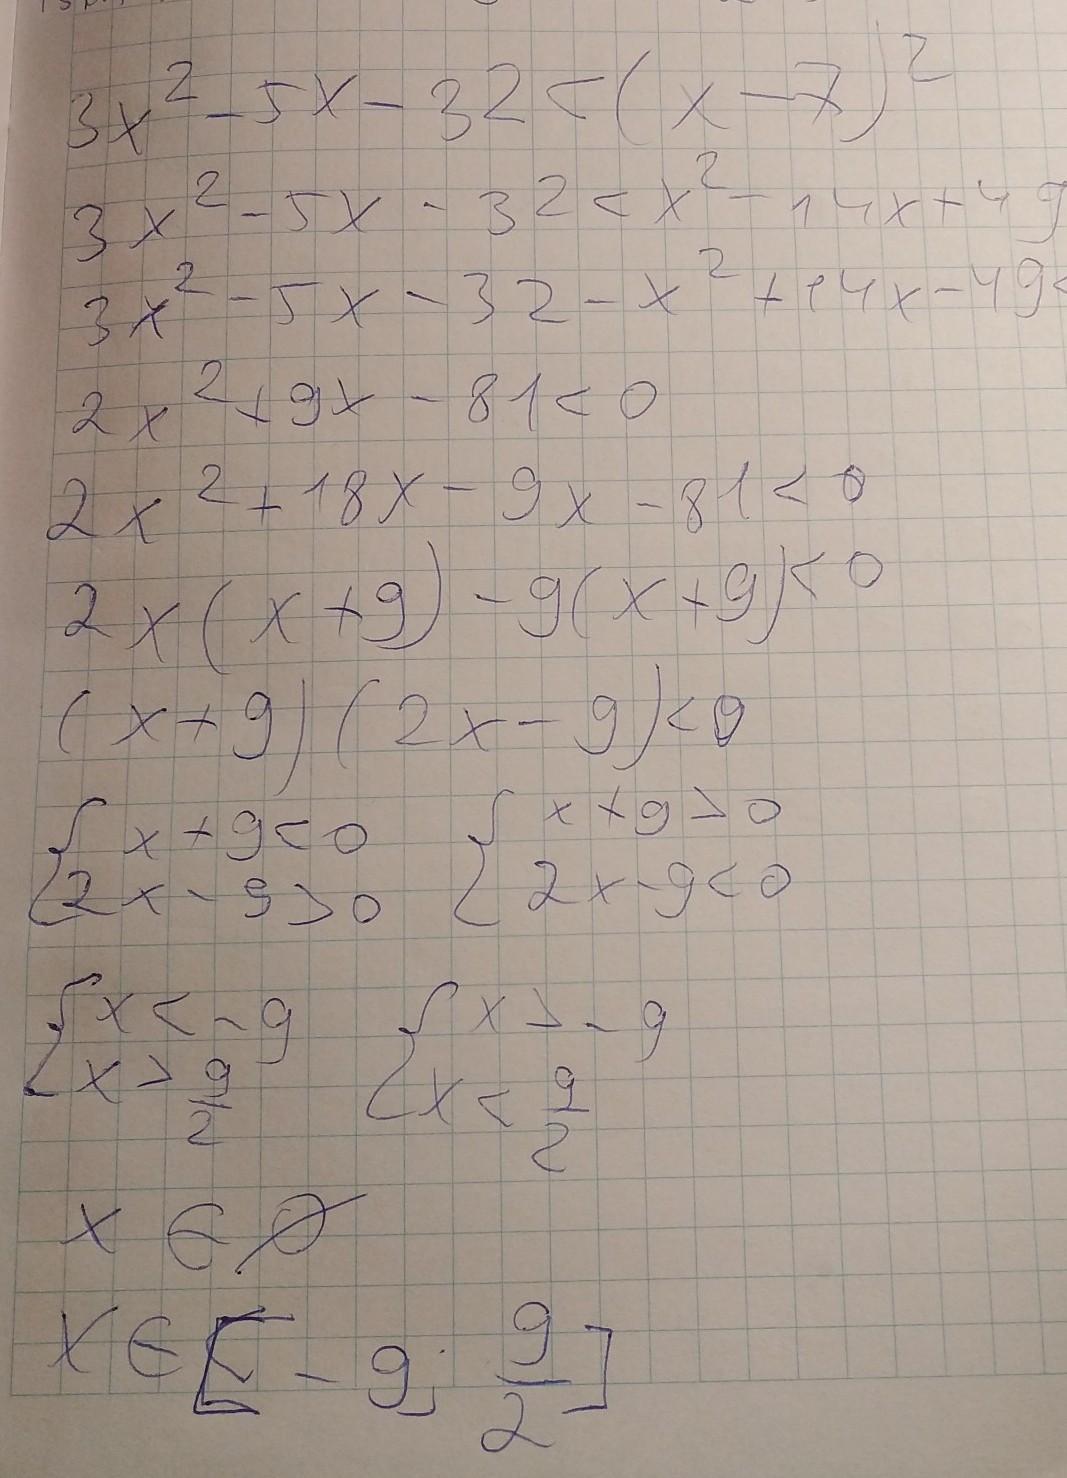 3x² - 5x - 32 < (x - 7)²
3x² - 5x - 32 < x² - 14x + 49
3x² - 5x - 32 - x² + 14x - 49 <
2x² + 9x - 81 < 0
2x² + 18x - 9x - 81 < 0
2x(x + 9) - 9(x + 9) < 0
(x + 9)(2x - 9) < 0
{ x + 9 < 0 { x + 9 > 0
{ 2x - 9 > 0 { 2x - 9 < 0
{ x < -9 { x > -9
{ x > 9/2 { x < 9/2
x ∈ ∅
x ∈ [-9; 9/2]